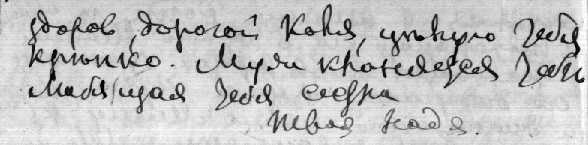 здоров, дорогой Коля, цѣлую тебя
крѣпко. Муля кланяется тебѣ
Любящая тебя сестра
Твоя Надя.